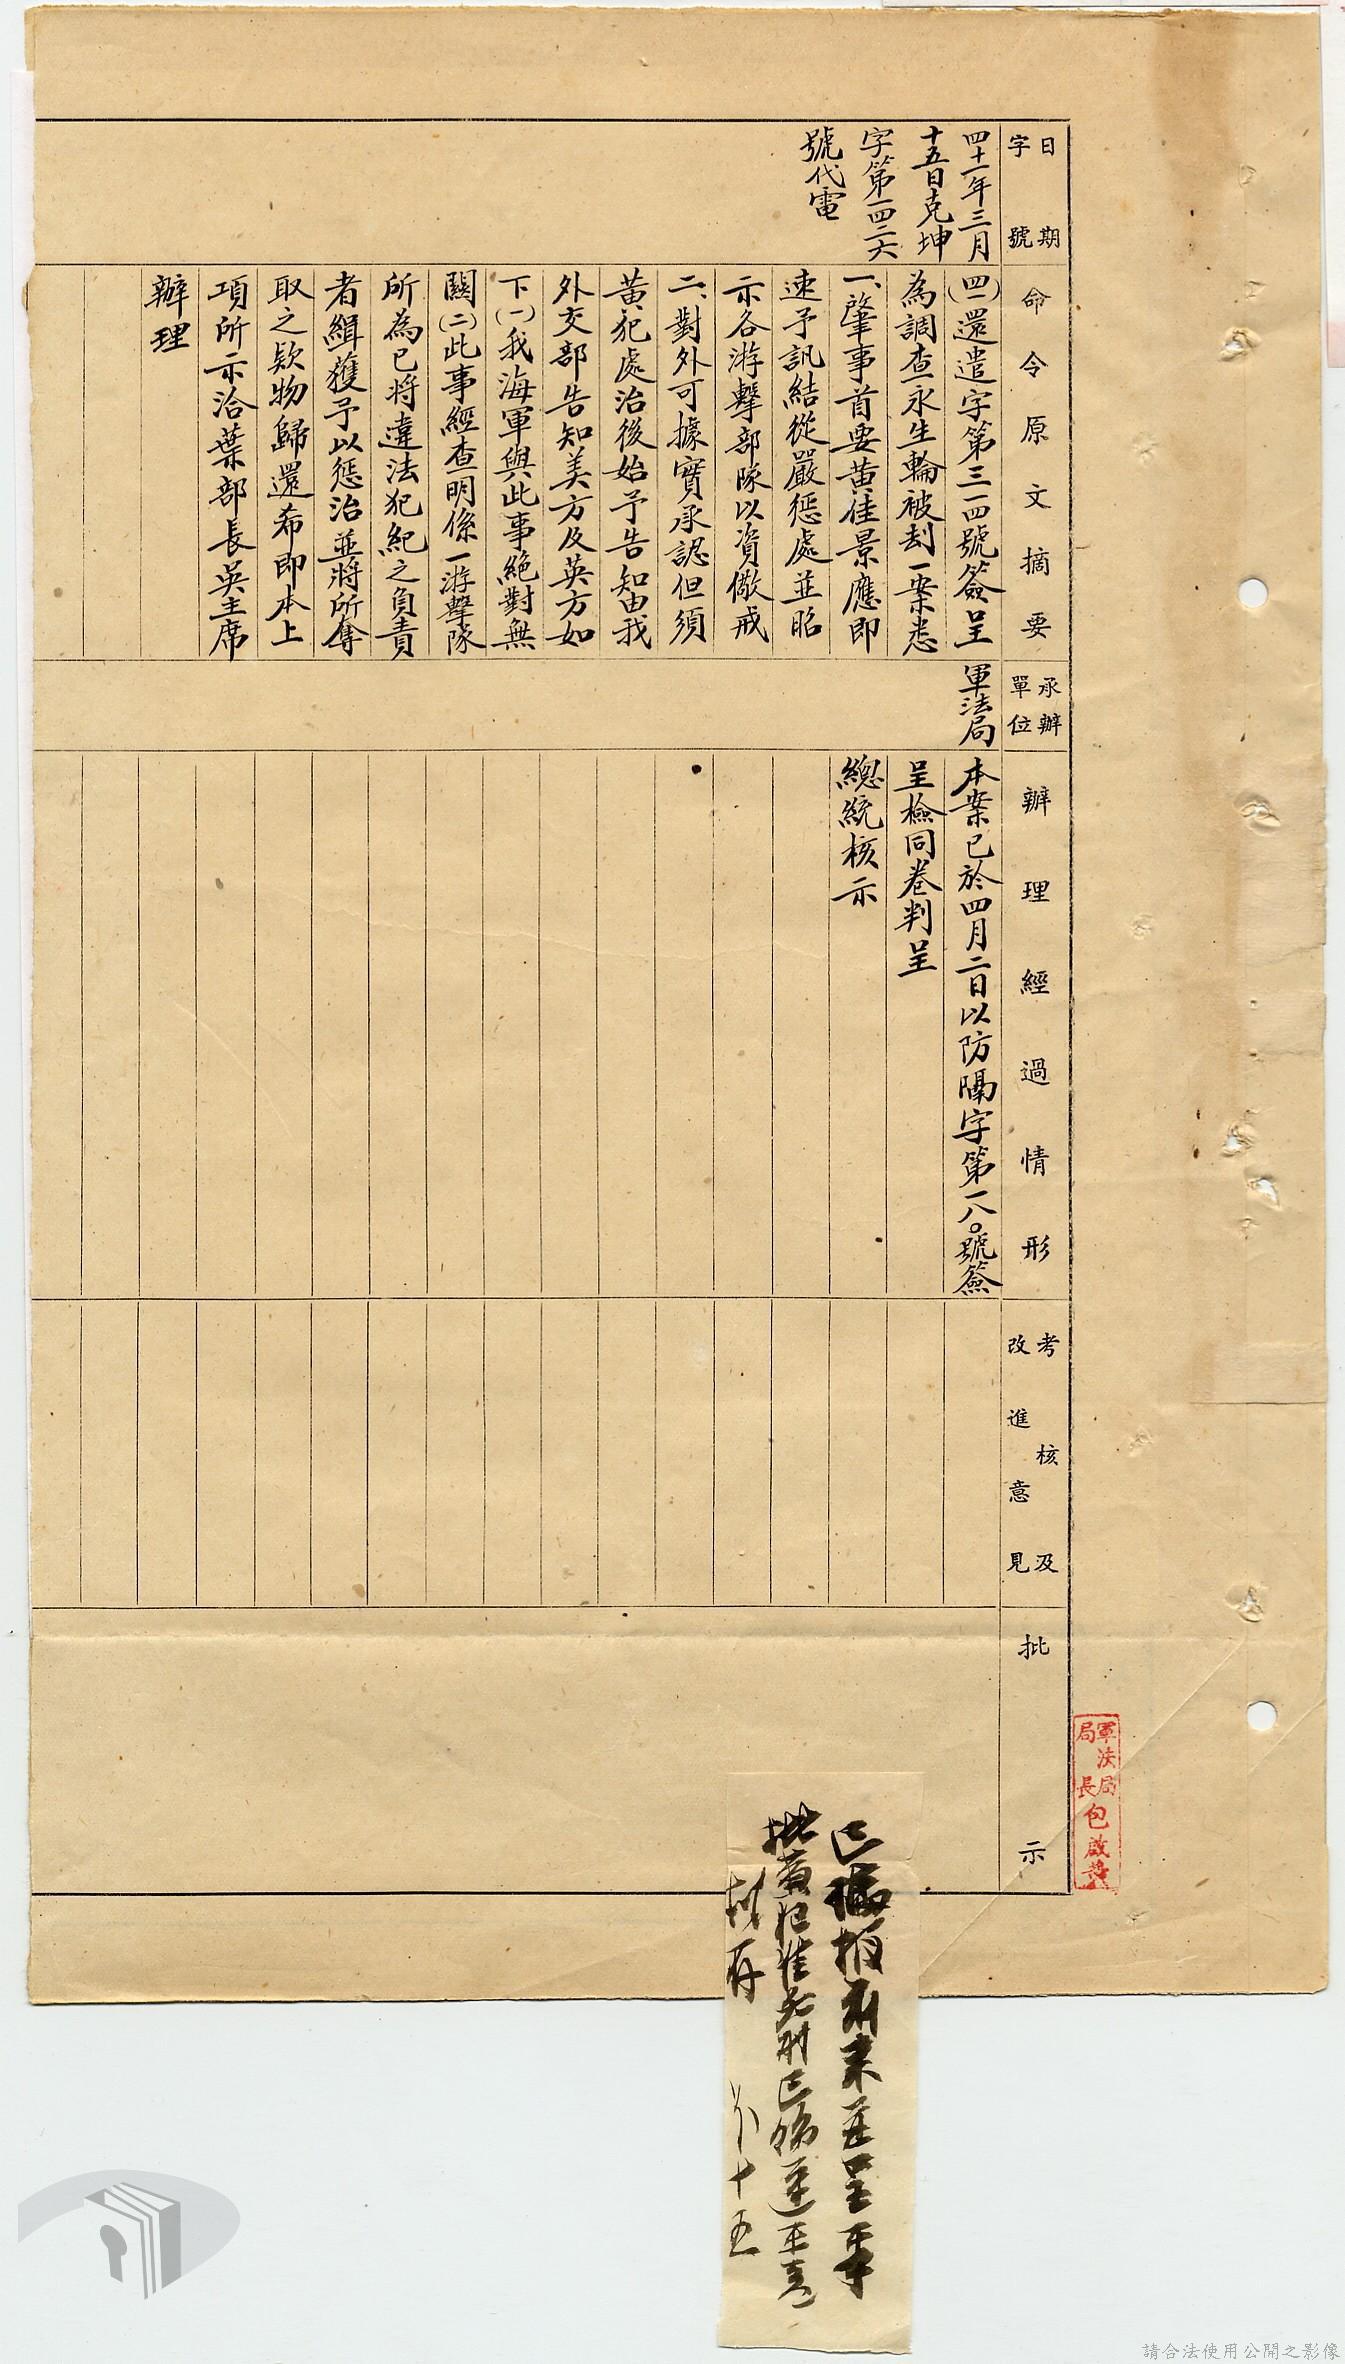 日期
字號
四十一年三月
十五日克坤
字第一四二六
號代電
命令原文摘要
(四一)還遣字第三一四號簽呈
為調查永生輪被刦一案悉
一、肇事首要黃佳景應即
速予訊結從嚴懲處並昭
示各游擊部隊以資儆戒
二、對外可據實承認但須
黃犯處治後始予告知由我
外交部告知美方及英方如
下(一)我海軍與此事絕對無
關(二)此事經查明係一游擊隊
所為已將違法犯紀之負責
者緝獲予以懲治並將所奪
取之欵物歸還希即本上
項所示洽葉部長吳主席
辦理
承辦
單位
軍法局
辦理經過情形
本案已於四月二日以防隔字第一八〇號簽
呈檢同卷判呈
總統核示
考核及
改進意見
批示
軍法局
局長包啟黃
批黃犯准死刑已
擬存
十五
請合法使用公開之影像